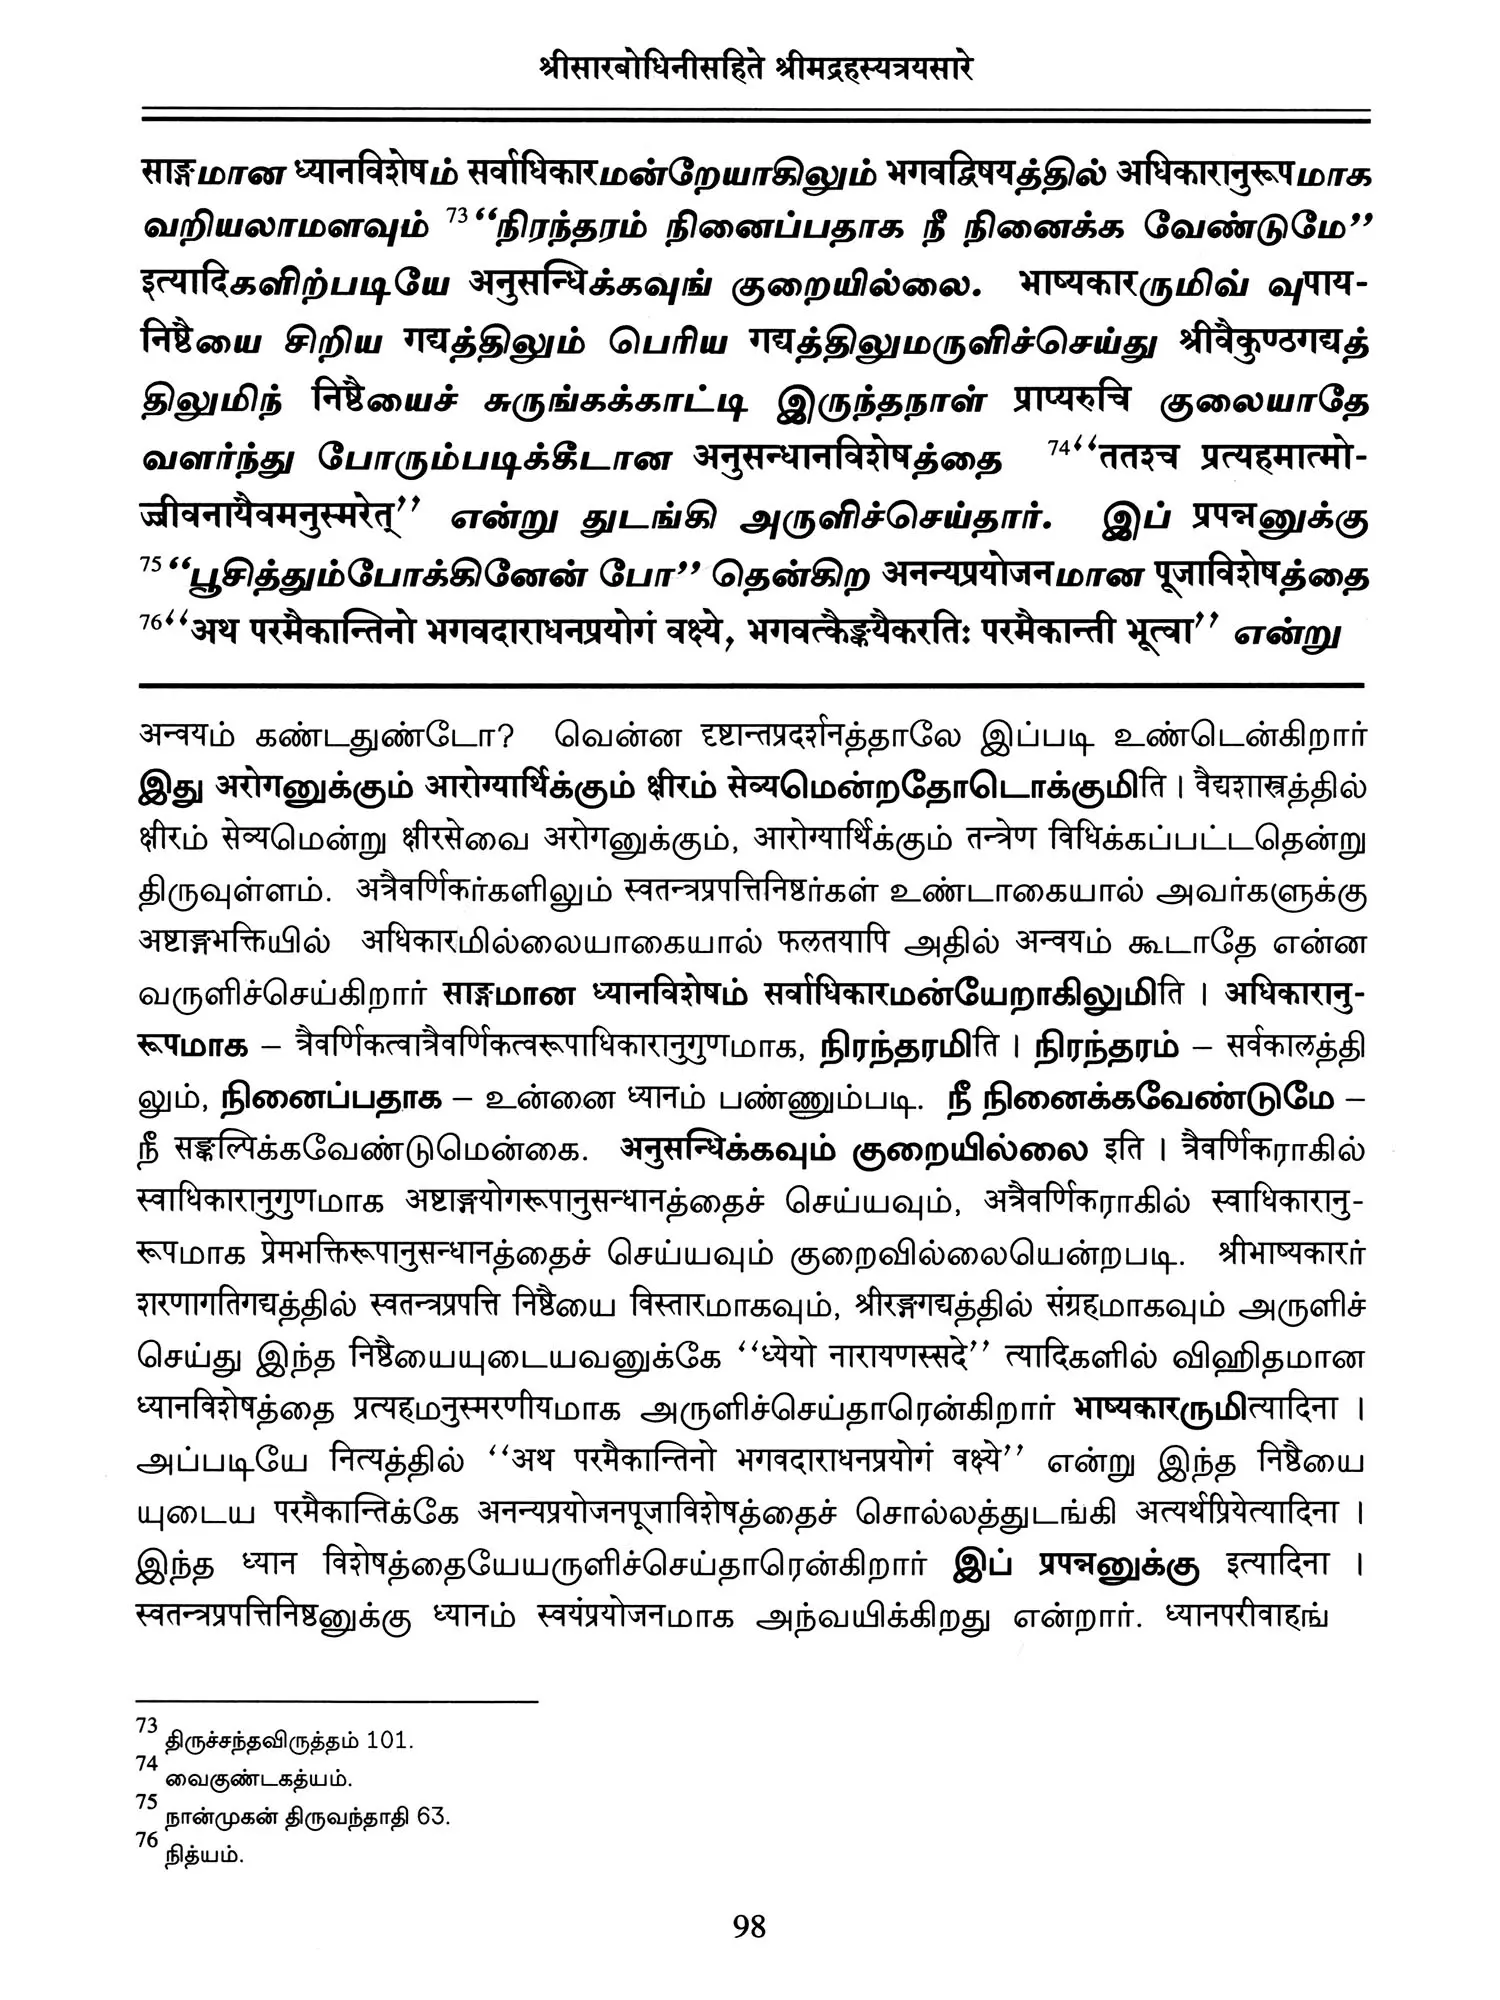 श्रीसारबोधिनीसहिते श्रीमद्रहस्यत्रयसारे
साङ्गமான ध्यानविशेषம் सर्वाधिकारமன்றேயாகிலும் भगवद्विषयத்தில் अधिकारानुरूपமாக
வறியலாமளவும் 73“நிரந்தரம் நினைப்பதாக நீ நினைக்க வேண்டுமே”
इत्यादिகளிற்படியே अनुसन्धिக்கவுங் குறையில்லை. भाष्यकारருமிவ் வுपाय-
निष्ठैயை சிறிய गद्यத்திலும் பெரிய गद्यத்திலுமருளிச்செய்து श्रीवैकुण्ठगद्यத்
திலுமிந் निष्ठैயைச் சுருங்கக்காட்டி இருந்தநாள் प्राप्यरुचि குலையாதே
வளர்ந்து போரும்படிக்கீடான अनुसन्धानविशेषத்தை 74“ततश्च प्रत्यहमात्मो-
ज्जीवनायैवमनुस्मरेत्” என்று துடங்கி அருளிச்செய்தார். இப் प्रपन्नனுக்கு
75“பூசித்தும்போக்கினேன் போ” தென்கிற अनन्यप्रयोजनமான पूजाविशेषத்தை
76“अथ परमैकान्तिनो भगवदाराधनप्रयोगं वक्ष्ये, भगवत्कैङ्कर्यैकरतिः परमैकान्ती भूत्वा” என்று
अन्वयம் கண்டதுண்டோ? வென்ன दृष्टान्तप्रदर्शनத்தாலே இப்படி உண்டென்கிறார்
இது अरोगனுக்கும் आरोग्यार्थिக்கும் क्षीरம் सेव्यமென்றதோடொக்குமிति । वैद्यशास्त्रத்தில்
क्षीरம் सेव्यமென்று क्षीरसेவை अरोगனுக்கும், आरोग्यार्थिக்கும் तन्त्रेण विधिக்கப்பட்டதென்று
திருவுள்ளம். अत्रैवर्णिकர்களிலும் स्वतन्त्रप्रपत्तिनिष्ठர்கள் உண்டாகையால் அவர்களுக்கு
अष्टाङ्गभक्तिயில் अधिकारமில்லையாகையால் फलतयापि அதில் अन्वयம் கூடாதே என்ன
வருளிச்செய்கிறார் साङ्गமான ध्यानविशेषம் सर्वाधिकारமன்யேறாகிலுமிति । अधिकारानु-
रूपமாக – त्रैवर्णिकत्वात्रैवर्णिकत्वरूपाधिकारानुगुणமாக, நிரந்தரமிति । நிரந்தரம் – सर्वकालத்தி
லும், நினைப்பதாக – உன்னை ध्यानம் பண்ணும்படி. நீ நினைக்கவேண்டுமே –
நீ सङ्कल्पिக்கவேண்டுமென்கை. अनुसन्धिக்கவும் குறையில்லை इति । त्रैवर्णिकராகில்
स्वाधिकारानुगुणமாக अष्टाङ्गयोगरूपानुसन्धानத்தைச் செய்யவும், अत्रैवर्णिकராகில் स्वाधिकारानु-
रूपமாக प्रेमभक्तिरूपानुसन्धानத்தைச் செய்யவும் குறைவில்லையென்றபடி. श्रीभाष्यकारர்
शरणागतिगद्यத்தில் स्वतन्त्रप्रपत्ति निष्ठैயை विस्तारமாகவும், श्रीरङ्गगद्यத்தில் संग्रहமாகவும் அருளிச்
செய்து இந்த निष्ठैயையுடையவனுக்கே “ध्येयो नारायणस्सदे” त्यादिகளில் விஹிதமான
ध्यानविशेषத்தை प्रत्यहमनुस्मरणीयமாக அருளிச்செய்தாரென்கிறார் भाष्यकारருமிत्यादिना ।
அப்படியே नित्यத்தில் “अथ परमैकान्तिनो भगवदाराधनप्रयोगं वक्ष्ये” என்று இந்த निष्ठैயை
யுடைய परमैकान्तिக்கே अनन्यप्रयोजनपूजाविशेषத்தைச் சொல்லத்துடங்கி अत्यर्थप्रियेत्यादिना ।
இந்த ध्यान विशेषத்தையேயருளிச்செய்தாரென்கிறார் இப் प्रपन्नனுக்கு इत्यादिना ।
स्वतन्त्रप्रपत्तिनिष्ठனுக்கு ध्यानம் स्वयंप्रयोजनமாக அந்வயிக்கிறது என்றார். ध्यानपरीवाहங்
73 திருச்சந்தவிருத்தம் 101.
74 வைகுண்டகத்யம்.
75 நான்முகன் திருவந்தாதி 63.
76 நித்யம்.
98